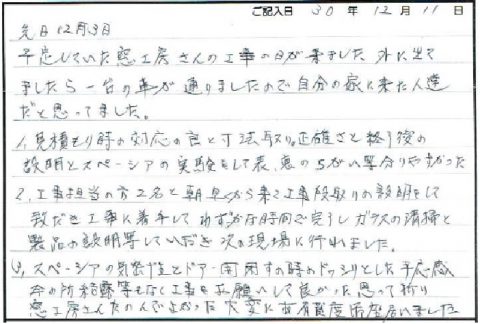 ご記入日 30年12月11日
先日12月3日
予定していた窓工房さんの工事の日が来ました 外に出て
ましたら一台の車が通りましたので自分の家に来た人達
だと思ってました。
1, 見積もり時の対応の良さ寸法取り正確さと終り後の
説明とスペーシアの実験をして表、裏のちがい等分りやすかった
2, 工事担当の方2名と朝早から来て工事段取りの説明をして
頂だき工事に着手してわずかな時間で完了しガラスの清掃と
製品の説明等していただき次の現場に行れました。
3, スペーシアの気密性とドアー開閉する時のドッシリとした手応感
今の所結露等もなく工事をお願いして良かった思って祈り
窓工房さんたのんでよかった 大変に